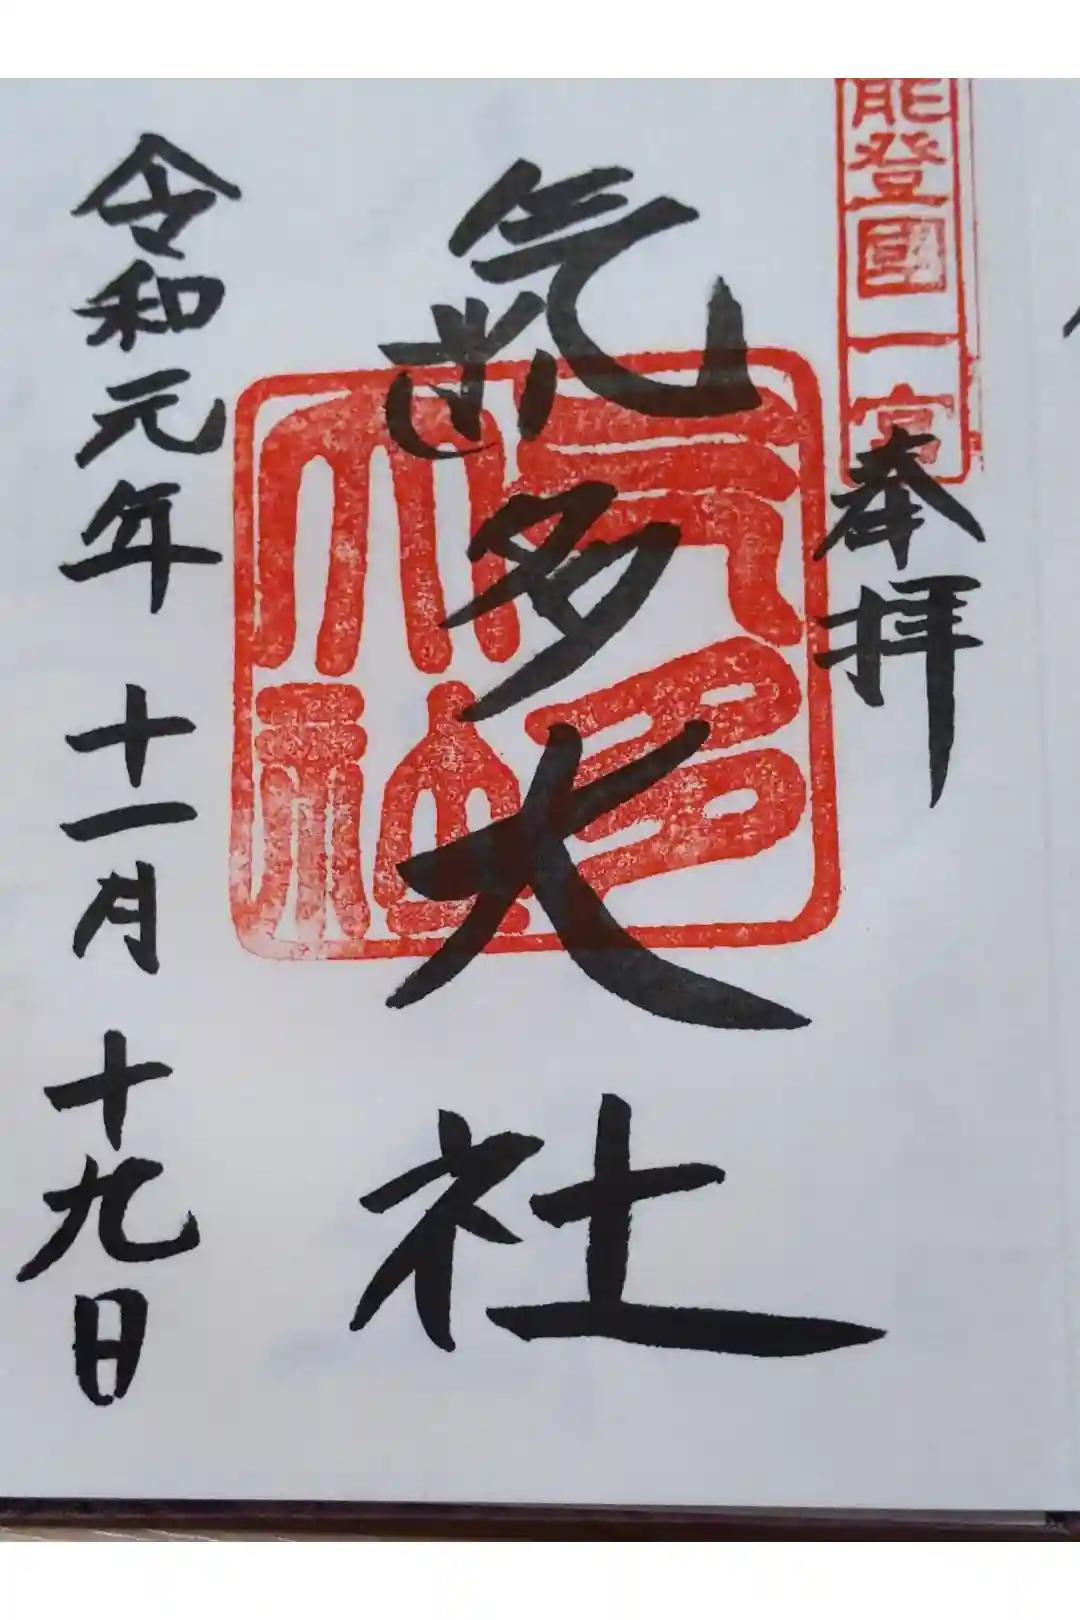 能登國一宮
奉拝
氣多大社
氣多大社
令和元年十一月十九日